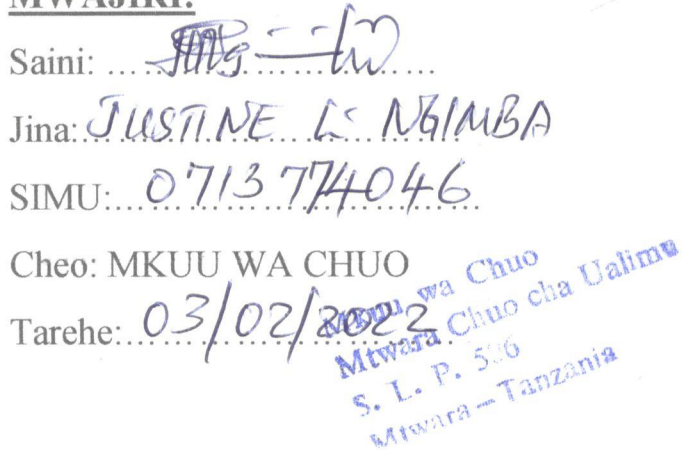 MWAJIRI:
Saini: ....................
Jina: JUSTINE K NGIMBA
SIMU: 0713 774046
Cheo: MKUU WA CHUO
Tarehe: 03/02/2022
Mkuu wa Chuo
Mtwara Chuo cha Ualimu
S. L. P. 506
Mtwara – Tanzania